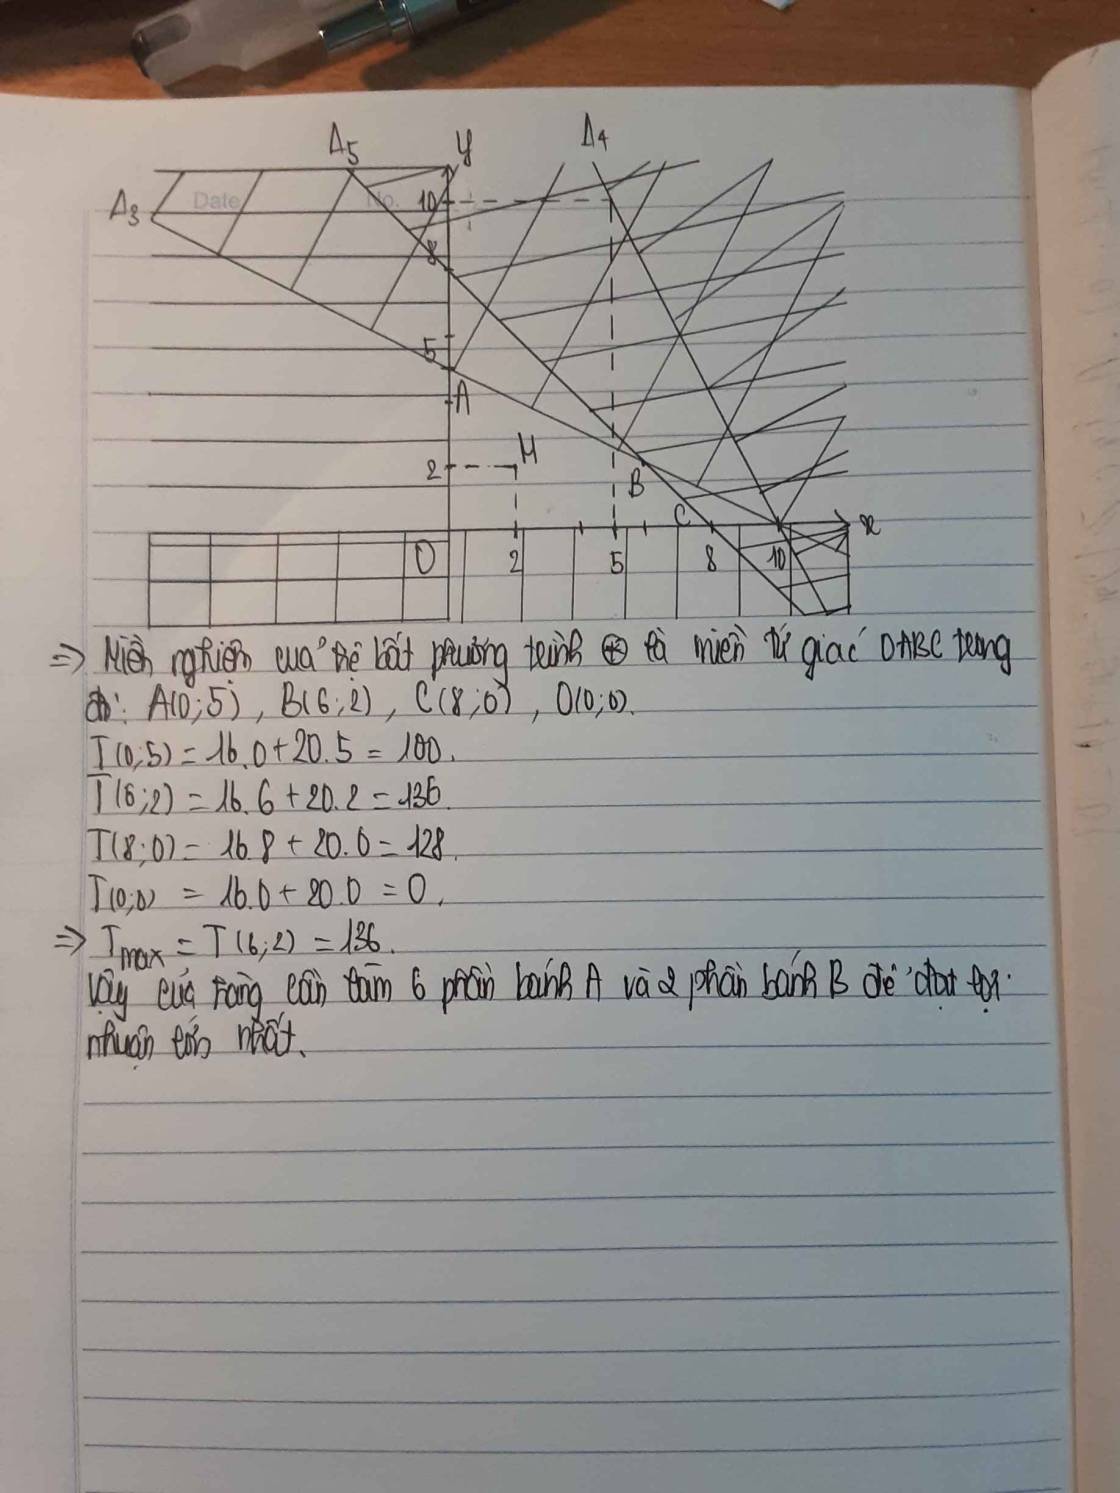 Δ5 y Δ4
Date No. 10
Δ3
8
5
A
M
2
B
C
x
O 2 5 8 10
=> Miền nghiệm của hệ bất phương trình (*) là miền tứ giác OABC trong
đó: A(0;5), B(6;2), C(8;0), O(0;0).
T(0;5) = 16.0+20.5 = 100.
T(6;2) = 16.6+20.2 = 136.
T(8;0) = 16.8+20.0 = 128.
T(0;0) = 16.0+20.0 = 0.
=> Tmax = T(6;2) = 136.
Vậy cửa hàng cần làm 6 phần bánh A và 2 phần bánh B để đạt lợi
nhuận lớn nhất.